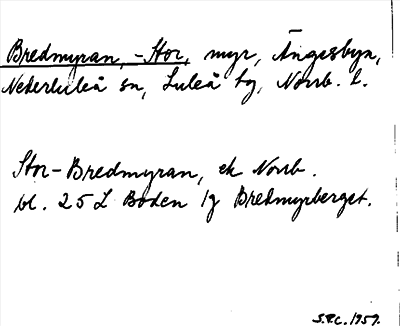 Bredmyran, -Stor, myr, Ängesbyn,
Nederluleå sn, Luleå tg, Norrb. l.
Stor-Bredmyran, ek Norrb.
bl. 25 L Boden 1g Bredmyrberget.
S.R.C. 1959.